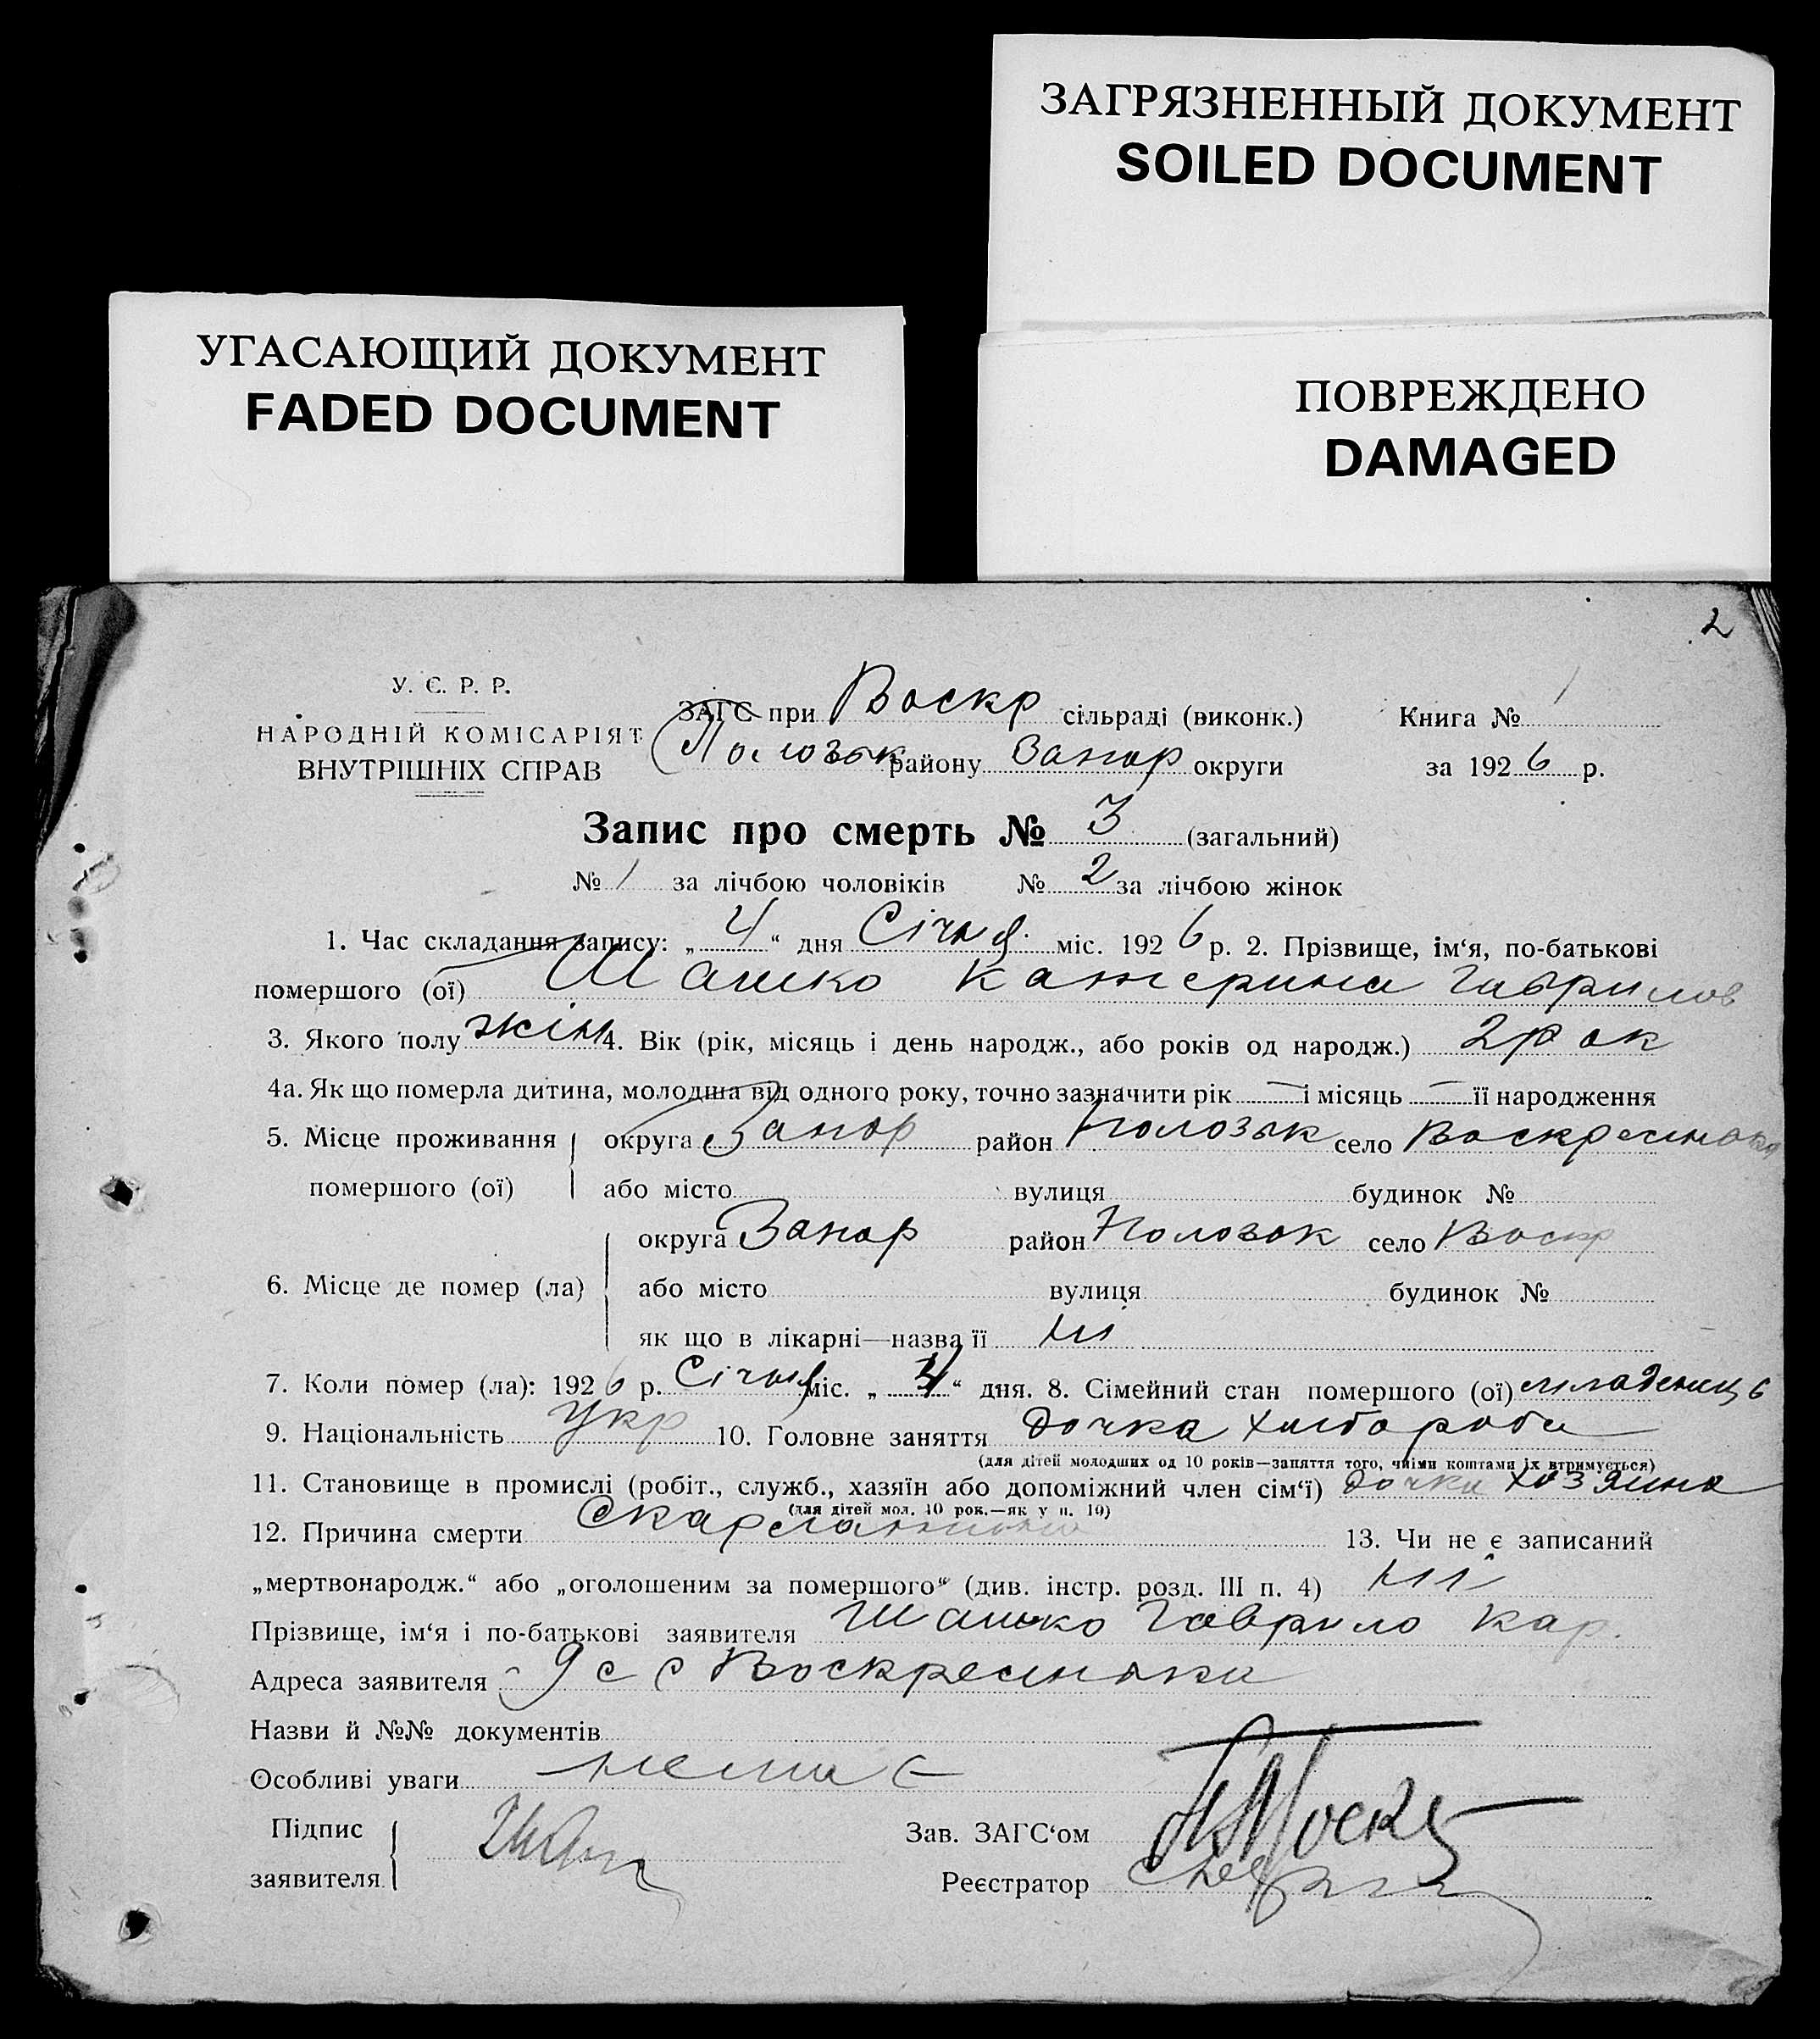 ЗАГРЯЗНЕННЫЙ ДОКУМЕНТ
SOILED DOCUMENT
УГАСАЮЩИЙ ДОКУМЕНТ
FADED DOCUMENT
ПОВРЕЖДЕНО
DAMAGED
2
У. С. Р. Р.
НАРОДНІЙ КОМІСАРІЯТ
ВНУТРІШНІХ СПРАВ
ЗАГС при Воскр сільраді (виконк.) Книга № 1
Пологівськ району Запор округи за 1926 р.
Запис про смерть № 3 (загальний)
№ 1 за лічбою чоловіків № 2 за лічбою жінок
1. Час складання запису: „ 4 “ дня Січня міс. 1926 р. 2. Прізвище, ім‘я, по-батькові
помершого (ої) Шашко Катерина Гаврилов
3. Якого полу жін 4. Вік (рік, місяць і день народж., або років од народж.) 2 рок
4а. Як що померла дитина, молодша від одного року, точно зазначити рік — і місяць — її народження
5. Місце проживання округа Запор район Пологівськ село Воскресенька
помершого (ої) або місто вулиця будинок №
округа Запор район село Воскр
6. Місце де помер (ла) або місто вулиця будинок №
як що в лікарні—назва її ні
7. Коли помер (ла): 1926 р. Січня міс. „ “ дня. 8. Сімейний стан помершого (ої) младенець
9. Національність Укр 10. Головне заняття дочка хлібороба
(для дітей молодших од 10 років—заняття того, чиїми коштами їх втримується)
11. Становище в промислі (робіт., служб., хазяїн або допоміжний член сім‘ї) дочка хозяина
(для дітей мол. 10 рок.—як у п. 10)
12. Причина смерти Скарлатина 13. Чи не є записаний
„мертвонародж.“ або „оголошеним за помершого“ (див. інстр. розд. III п. 4) ні
Прізвище, ім‘я і по-батькові заявителя Шашко Гаврило Кар.
Адреса заявителя с Воскресенька
Назви й №№ документів
Особливі уваги немає
Підпис
заявителя
Зав. ЗАГС‘ом
Реєстратор